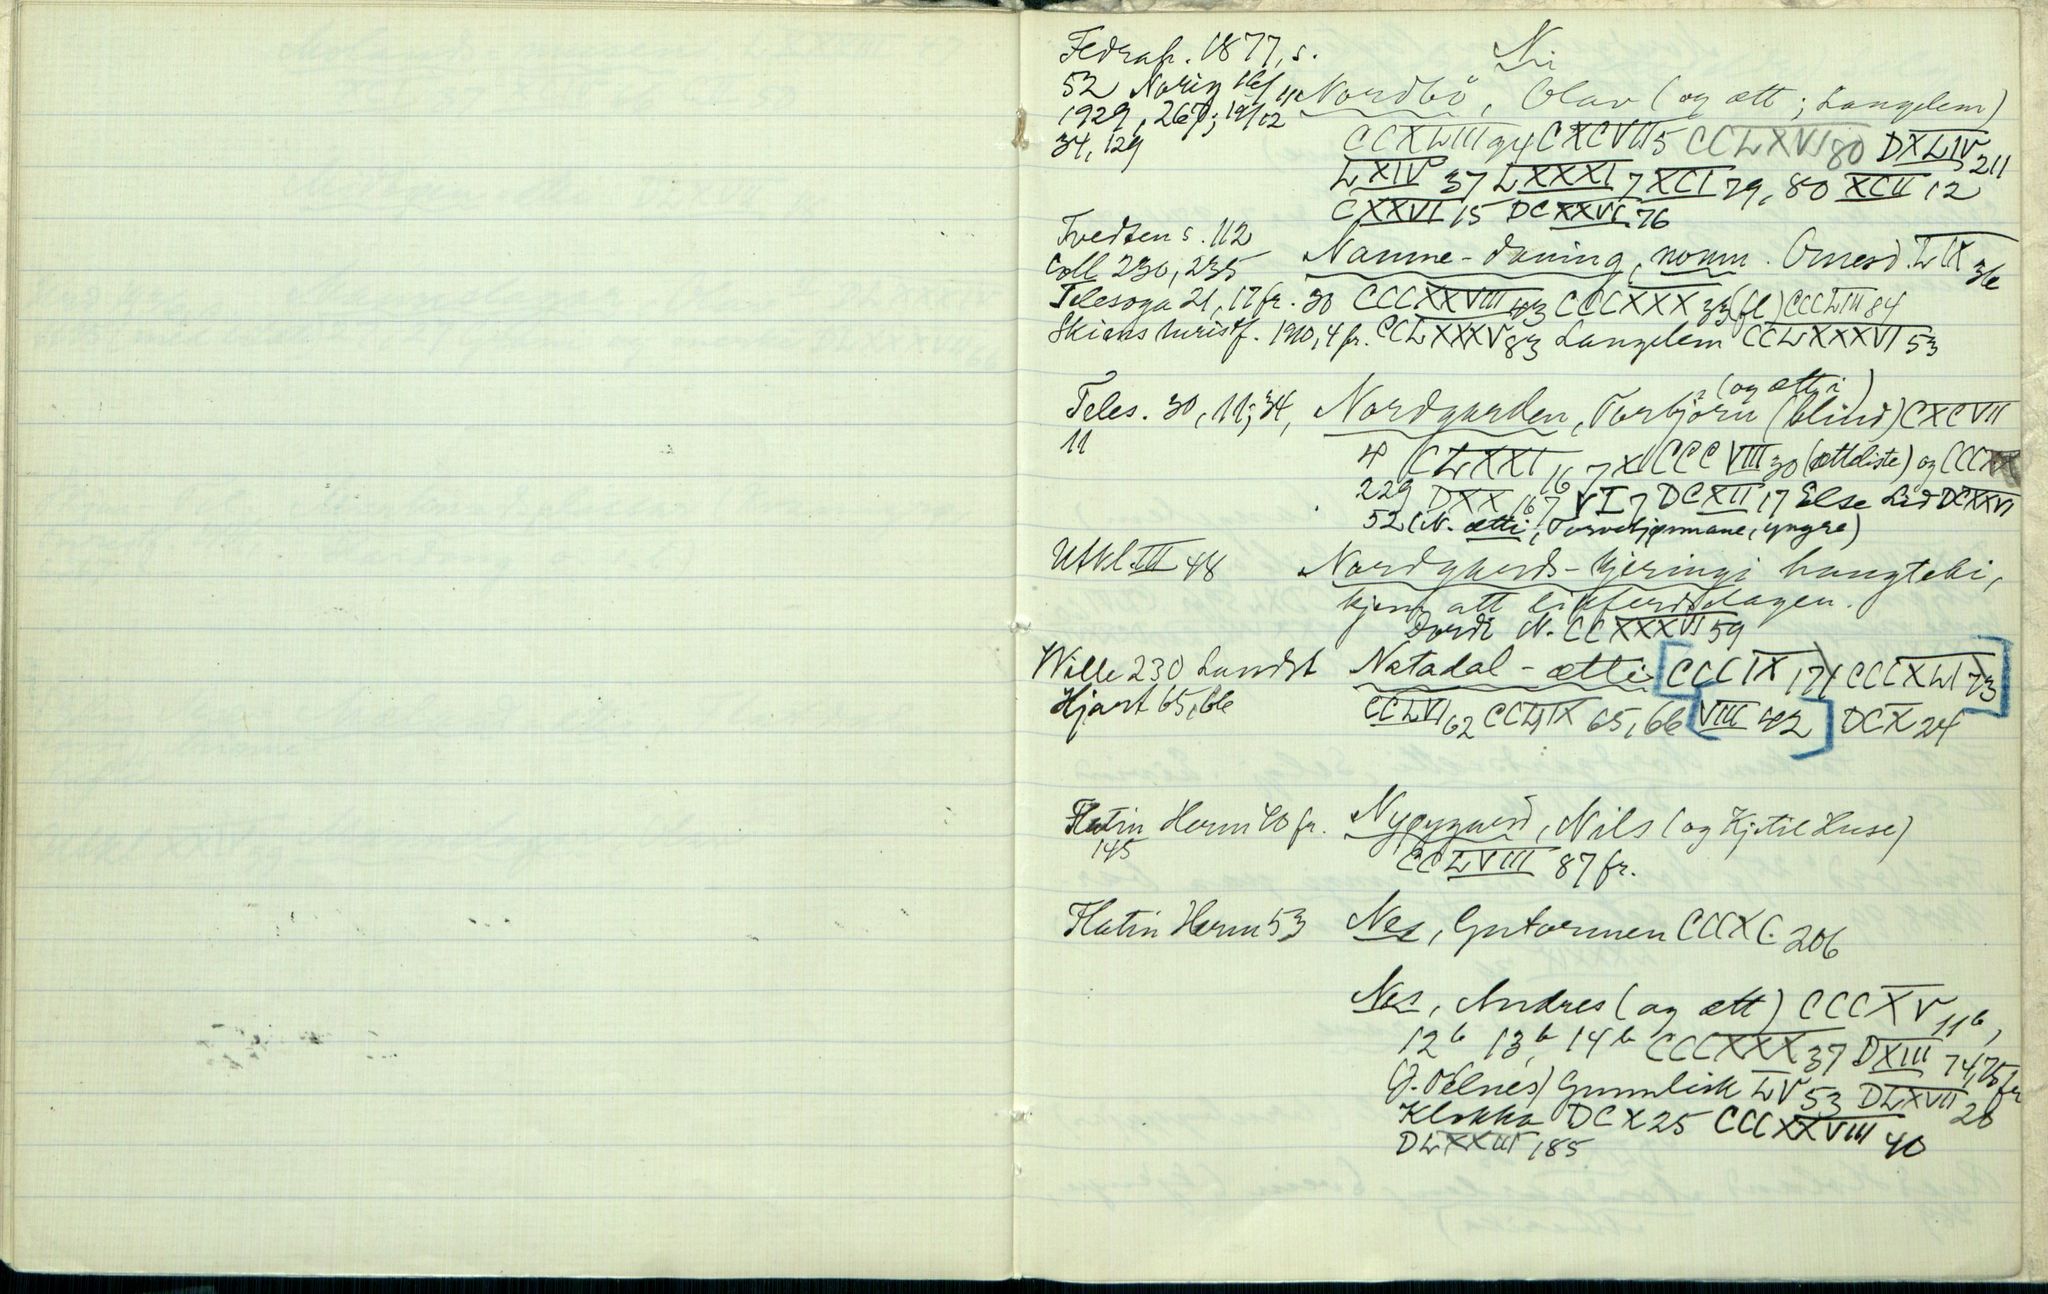 Fedrah. 1877, s.
52 Norig
1929, 267; 19/12
34, 129
N
Nordbö, Olav (og ætt; Langlem)
CCXLIII 94 CXCVII 5 CCLXVI 80 DXLIV 211
LXIV 37 LXXXI 7 XCI 79, 80 XCII 12
CXXVI 15 DCXXVI 76
Tvedten s. 112
Coll 230, 235
Telesoga 21, 17 fr. 30
Skiens turistf. 1910, 4 fr.
Namne-daning, norm. Ormerd. LIX 36
CCCXXVIII 43 CCCXXX 33 (fl) CCCLII 84
CCLXXXV 83 Langelem CCLXXXVI 53
Teles. 30, 11; 34,
11
Nordgarden, Torbjörn (blind) (og ætti) CXCVII
4 CLXXI 16 7 XI CCCVIII 30 (ætteliste) og CCCXX
229 DXX 167 VI 7 DCXII 17 Else Lid DCXXVI
52 (N. ætti, Torvebjønnane, yngre)
Utkl. III 48
Nordgards-kjeringi haugteki,
kjem att likferdsdagen.
Dordi N. CCXXXVI 59
Wille 230 Lundst
Hjart 65, 66
Natadal-ætti CCCIX 174 CCCXLI 73
CCLVI 62 CCLIX 65, 66 VIII 42 DCX 24
Flatin Herm 40 fr.
145
Nygygard, Nils (og Kjetil Huse)
CCLVIII 87 fr.
Flatin Herm 53
Nes, Gutormen CCXC 206
Nes, Andres (og ætt) CCCXV 11 b,
12 b 13 b 14 b CCCXXX 37 DXIII 74, 75 fr
Gunnlisk LV 53 DLXVII 28
Klokka DCX 25 CCCXXVIII 40
DLXXIII 185